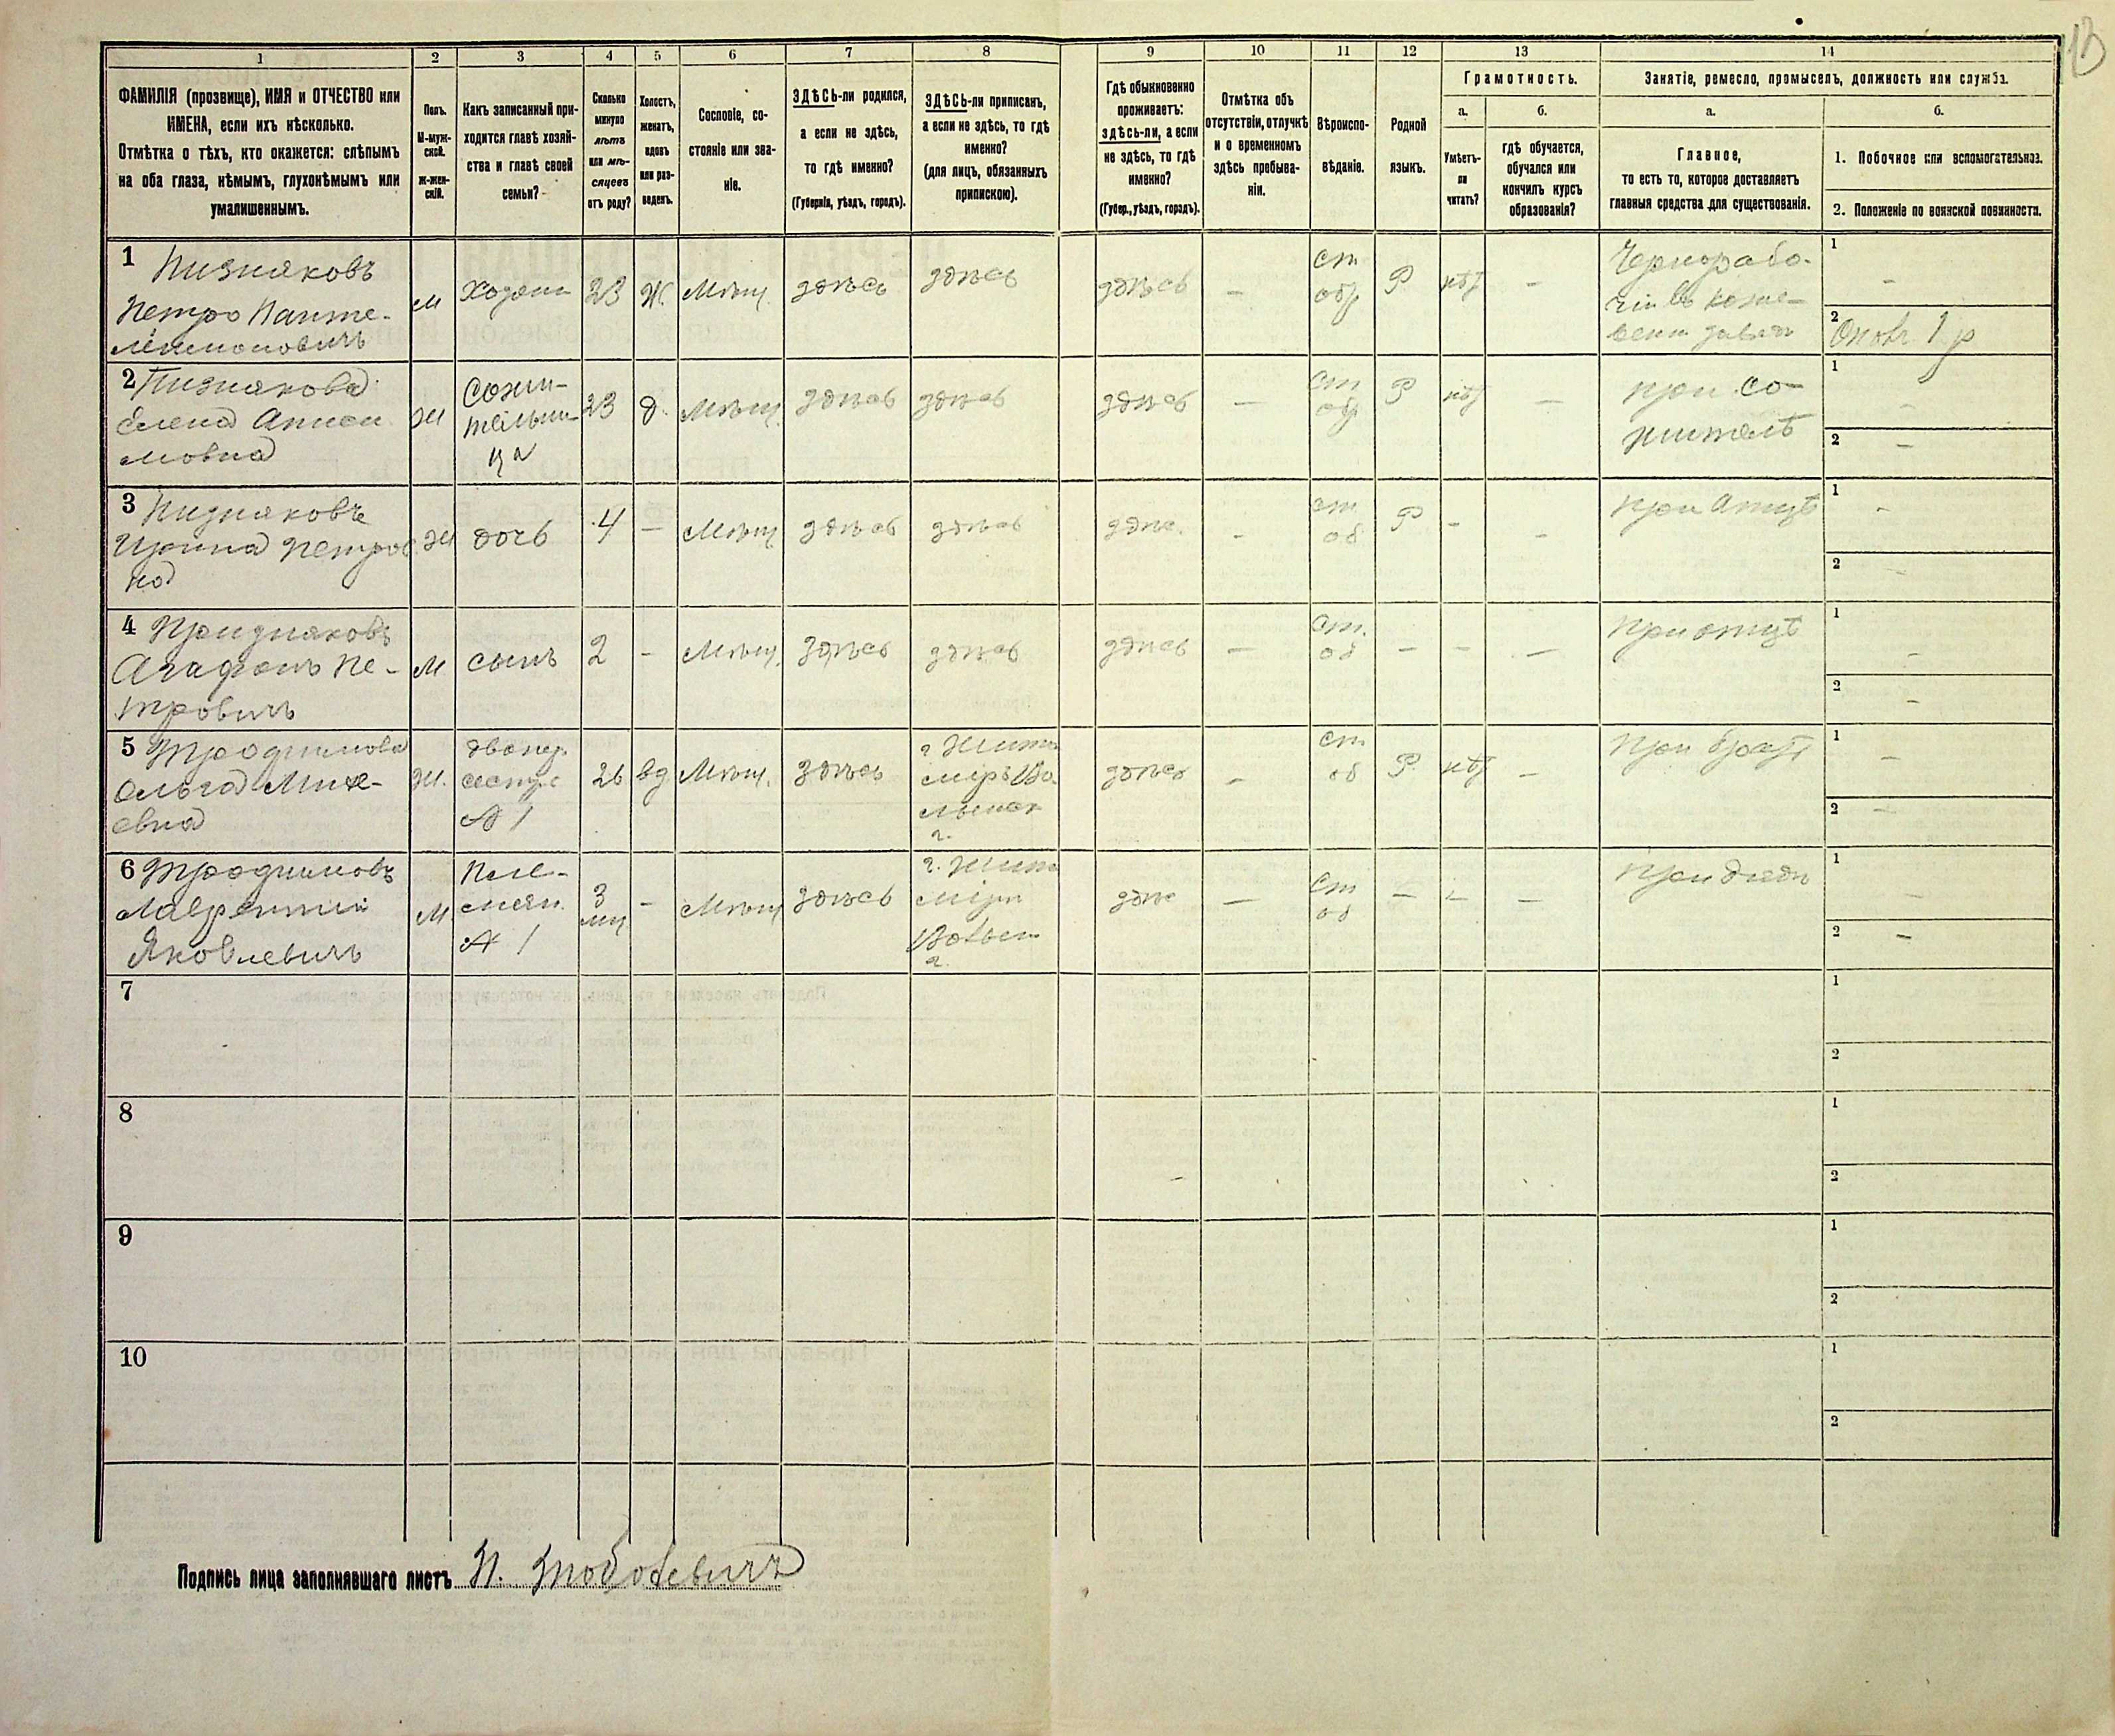 13
1 2 3 4 5 6 7 8 9 10 11 12 13 14
ФАМИЛІЯ (прозвище), ИМЯ и ОТЧЕСТВО или
ИМЕНА, если ихъ нѣсколько.
Отмѣтка о тѣхъ, кто окажется: слѣпымъ
на оба глаза, нѣмымъ, глухонѣмымъ или
умалишеннымъ.
Полъ.
М-муж-
ской.
Ж-жен-
скій.
Какъ записанный при-
ходится главѣ хозяй-
ства и главѣ своей
семьи?
Сколько
минуло
лѣтъ
или мѣ-
сяцевъ
отъ роду?
Холостъ,
женатъ,
вдовъ
или раз-
веденъ.
Сословіе, со-
стояніе или зва-
ніе.
ЗДѢСЬ-ли родился,
а если не здѣсь,
то гдѣ именно?
(Губернія, уѣздъ, городъ).
ЗДѢСЬ-ли приписанъ,
а если не здѣсь, то гдѣ
именно?
(для лицъ, обязанныхъ
припискою).
Гдѣ обыкновенно
проживаетъ:
здѣсь-ли, а если
не здѣсь, то гдѣ
именно?
(Губер., уѣздъ, городъ).
Отмѣтка объ
отсутствіи, отлучкѣ
и о временномъ
здѣсь пребыва-
ніи.
Вѣроиспо-
вѣданіе.
Родной
языкъ.
Грамотность.
а.
Умѣетъ-
ли
читать?
б.
гдѣ обучается,
обучался или
кончилъ курсъ
образованія?
Занятіе, ремесло, промыселъ, должность или служба.
а.
Главное,
то есть то, которое доставляетъ
главныя средства для существованія.
б.
1. Побочное или вспомогательное.
2. Положеніе по воинской повинности.
1 Пизняковъ
Петро Панте-
леимоновичъ
м
Хозяин
23
Ж.
Мѣщ.
здѣсь
здѣсь
здѣсь
—
ст
обр
Р
нѣт
—
Чернорабо-
чій въ коже-
вени завѣт
1
—
2
Ополч 1 р
2 Пизнякова
Елена Аниси
мовна
ж
Сожи-
тельни-
ца
23
д.
Мѣщ.
здѣсь
здѣсь
здѣсь
—
ст
об
Р
нѣт
—
при со-
жителѣ
1
—
2
—
3 Пизняковъ
Ирина Петров
на
ж
дочь
4
—
Мѣщ
здѣсь
здѣсь
здѣс.
-
ст
об
Р
-
-
при атцѣ
1
-
2
—
4 Призняковъ
Агафонъ Пе-
тровичъ
м
сынъ
2
-
Мѣщ.
здѣсь
здѣсь
здѣсь
—
ст.
об
—
—
—
при отцѣ
1
—
2
—
5 Трофимова
Ольга Михе-
евна
ж.
двоюр.
сестра
№ 1
26
вд
Мѣщ.
здѣсь
г Жито
міръ Во
лынск
г.
здѣсь
-
ст
об
Р
нѣт
—
при братѣ
1
—
2
—
6 Трофимовъ
Лаврентий
Яковлевичъ
м
Пле-
мян.
№ 1
3
мц
-
Мѣщ
здѣсь
г. Жито
міръ
Волын
г.
здѣс
—
ст
об
—
—
—
при дядѣ
1
—
2
—
7
1
2
8
1
2
9
1
2
10
1
2
Подпись лица заполнявшаго листъ